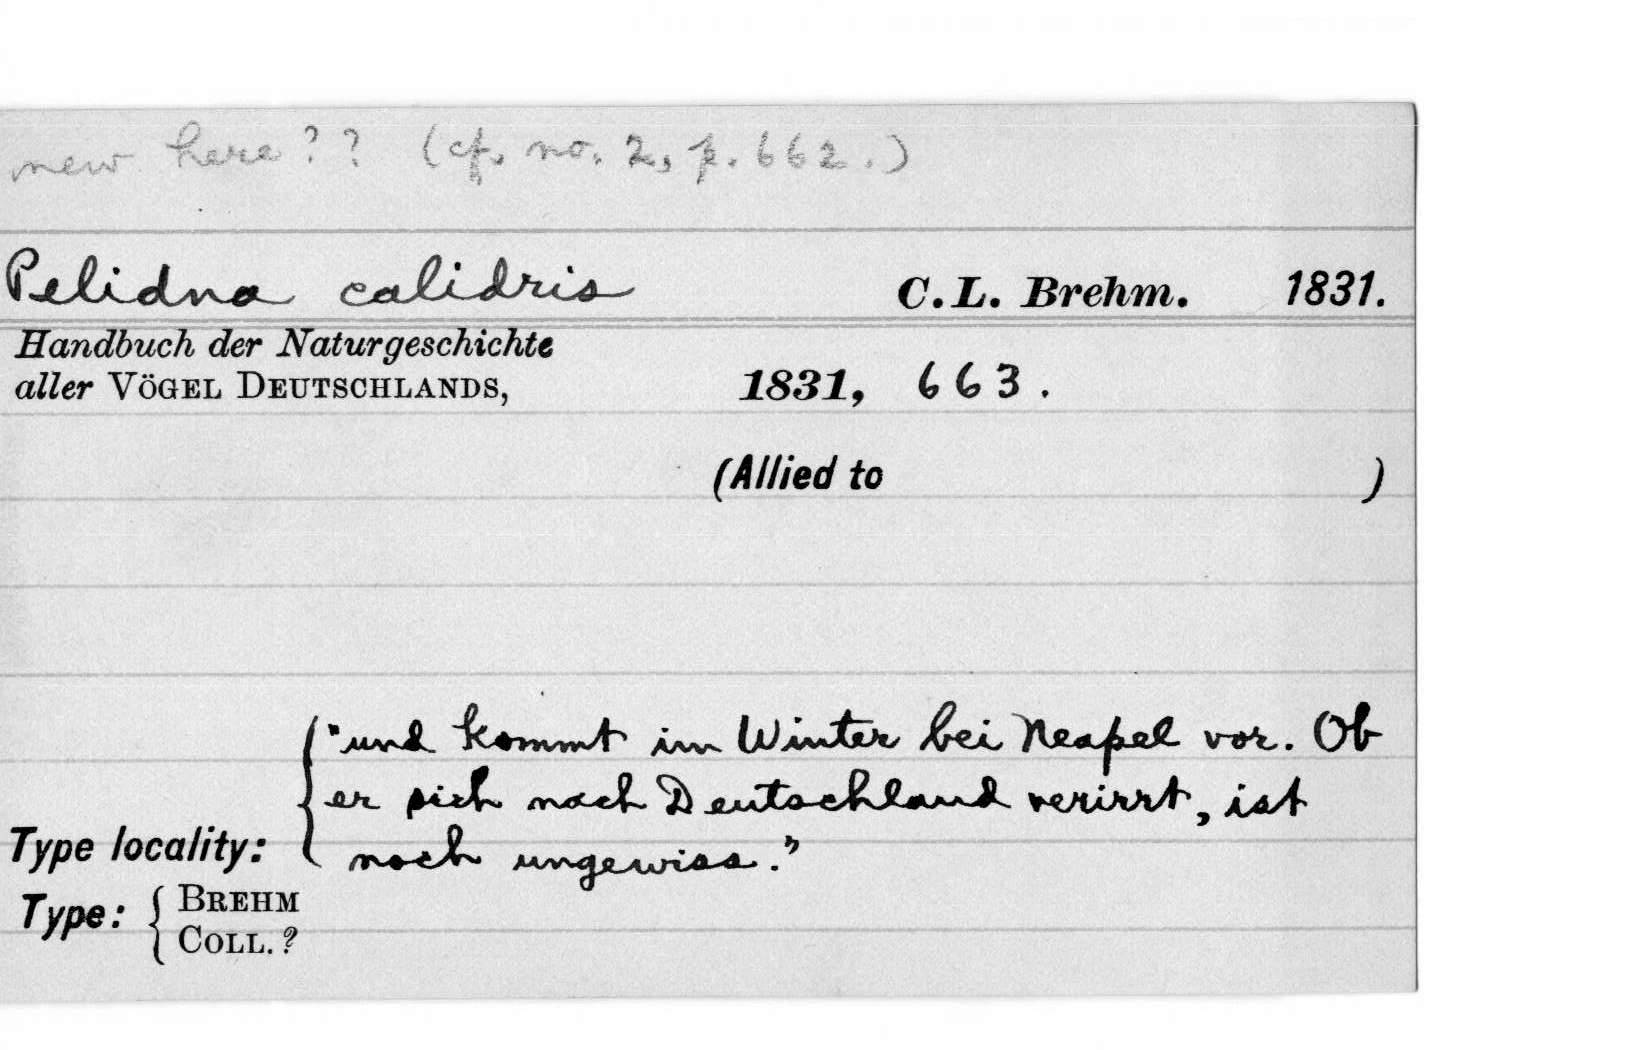 new here?? (cf. no. 2, p. 662.)
Pelidna calidris C. L. Brehm. 1831.
Handbuch der Naturgeschichte
aller VÖGEL DEUTSCHLANDS, 1831, 663.
(Allied to )
"und kommt im Winter bei Neapel vor. Ob
er sich nach Deutschland verirrt, ist
noch ungewiss."
Type locality:
Type: BREHM
COLL.?